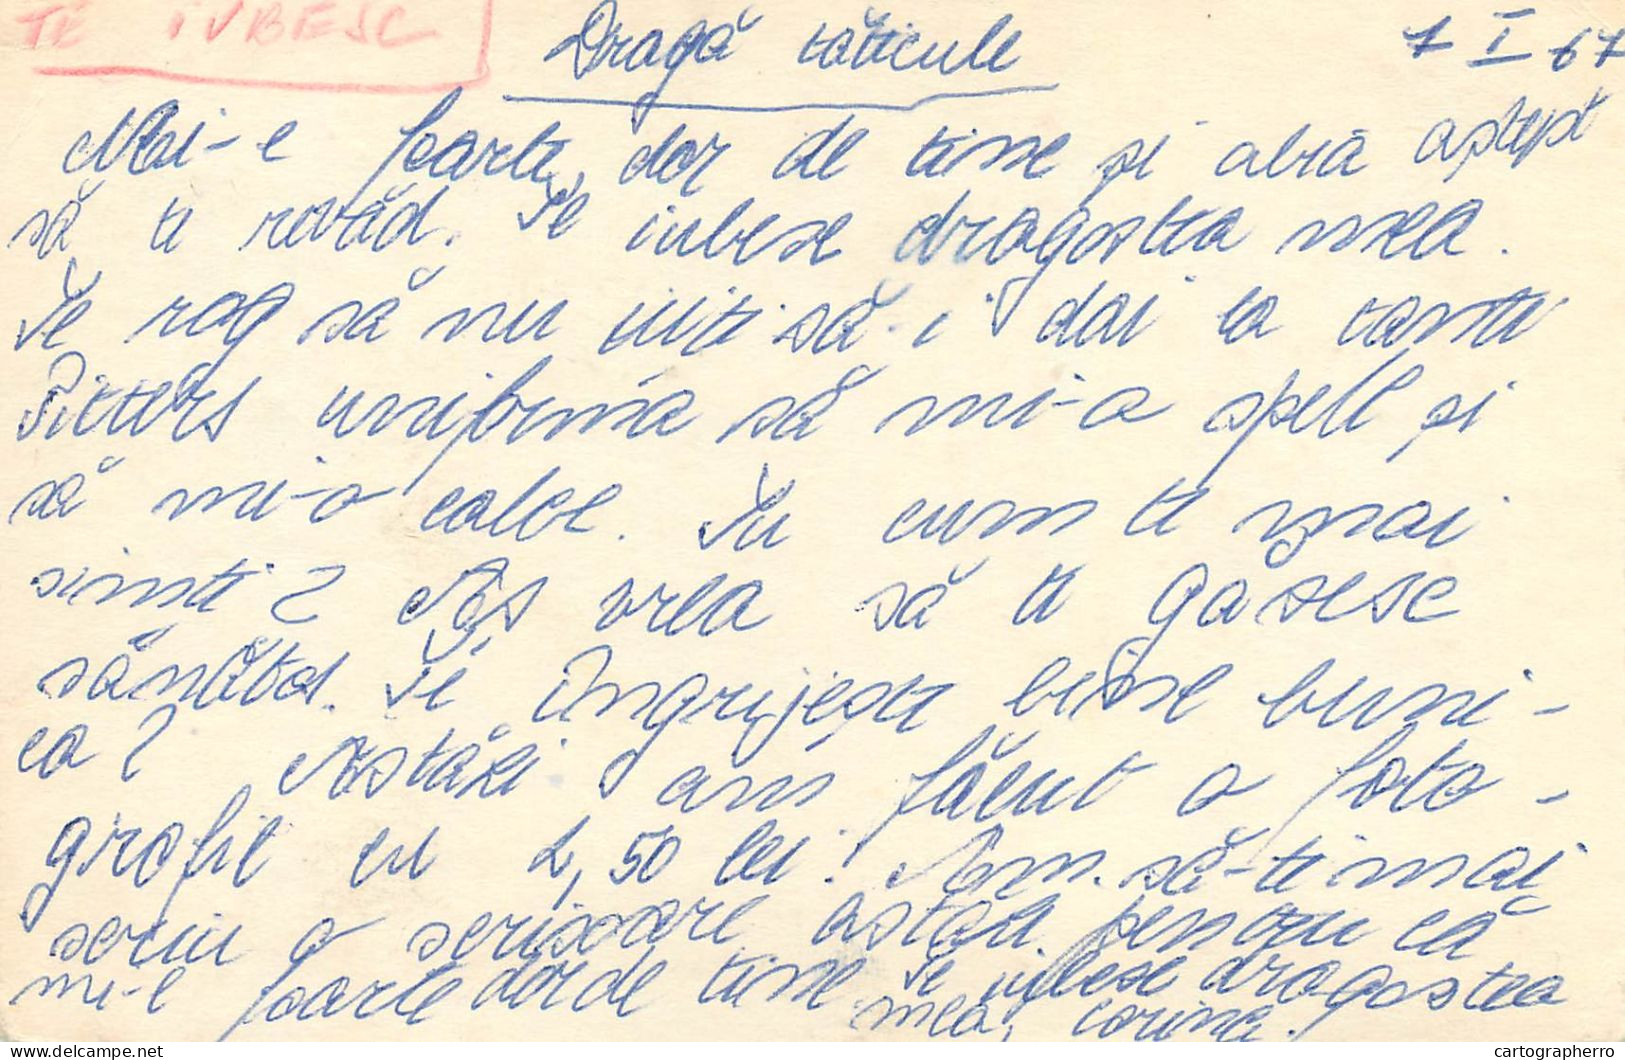 TE IUBESC
Dragă tăticule 7 I 67
Mi-e foarte dor de tine și abia aștept
să te revăd. Te iubesc dragostea mea.
Te rog să nu uiți să-i dai la tanti
Pitters uniforma să mi-o spele și
să mi-o calce. Tu cum te mai
simți? Aș vrea să te găsesc
sănătos. Te îngrijește bine buni-
ca? Astăzi am făcut o foto-
grafie cu 2,50 lei. Am să-ți mai
scriu o scrisoare astăzi pentru că
mi-e foarte dor de tine. Te iubesc dragostea
mea, Corina.
delcampe.net
cartographerro